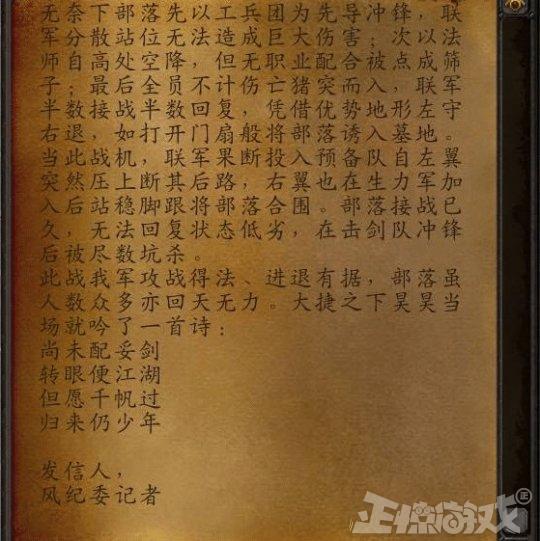 无奈下部落先以工兵团为先导冲锋，联
军分散站位无法造成巨大伤害；次以法
师自高处空降，但无职业配合被点成筛
子；最后全员不计伤亡猪突而入，联军
半数接战半数回复，凭借优势地形左守
右退，如打开门扇般将部落诱入墓地。
当此战机，联军果断投入预备队自左翼
突然压上断其后路，右翼也在生力军加
入后站稳脚跟将部落合围。部落接战已
久，无法回复状态低劣，在击剑队冲锋
后被尽数坑杀。
此战我军攻战得法、进退有据，部落虽
人数众多亦回天无力。大捷之下昊昊当
场就吟了一首诗：
尚未配妥剑
转眼便江湖
但愿千帆过
归来仍少年
发信人，
风纪委记者
正惊游戏
正